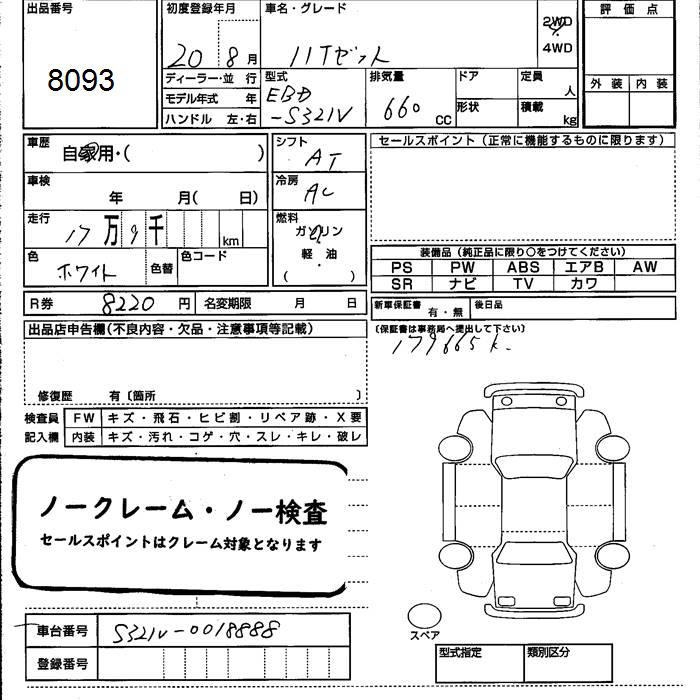 出品番号
8093
初度登録年月
20 8月
車名・グレード
ハイゼット
2WD
4WD
評価点
外装 内装
ディーラー・並行
モデル年式 年
ハンドル 左・右
型式
EBD
-S321V
排気量
660 CC
ドア
形状
定員 人
積載 kg
車歴
自家用・( )
車検
年 月( 日)
走行
17万9千 km
色
ホワイト
色替
色コード
シフト
AT
冷房
AC
燃料
ガソリン
軽・油
( )
セールスポイント(正常に機能するものに限ります)
装備品(純正品に限り○をつけてください)
PS PW ABS エアB AW
SR ナビ TV カワ
R券 8220 円 名変期限 月 日
新車保証書 有・無 後日品
(保証書は事務局へ提出して下さい)
179665k.
出品店申告欄(不良内容・欠品・注意事項等記載)
修復歴 有〔箇所 〕
検査員記入欄
FW キズ・飛石・ヒビ割・リペア跡・X要
内装 キズ・汚れ・コゲ・穴・スレ・キレ・破レ
ノークレーム・ノー検査
セールスポイントはクレーム対象となります
車台番号 S321V-0018888
登録番号
スペア
型式指定 類別区分